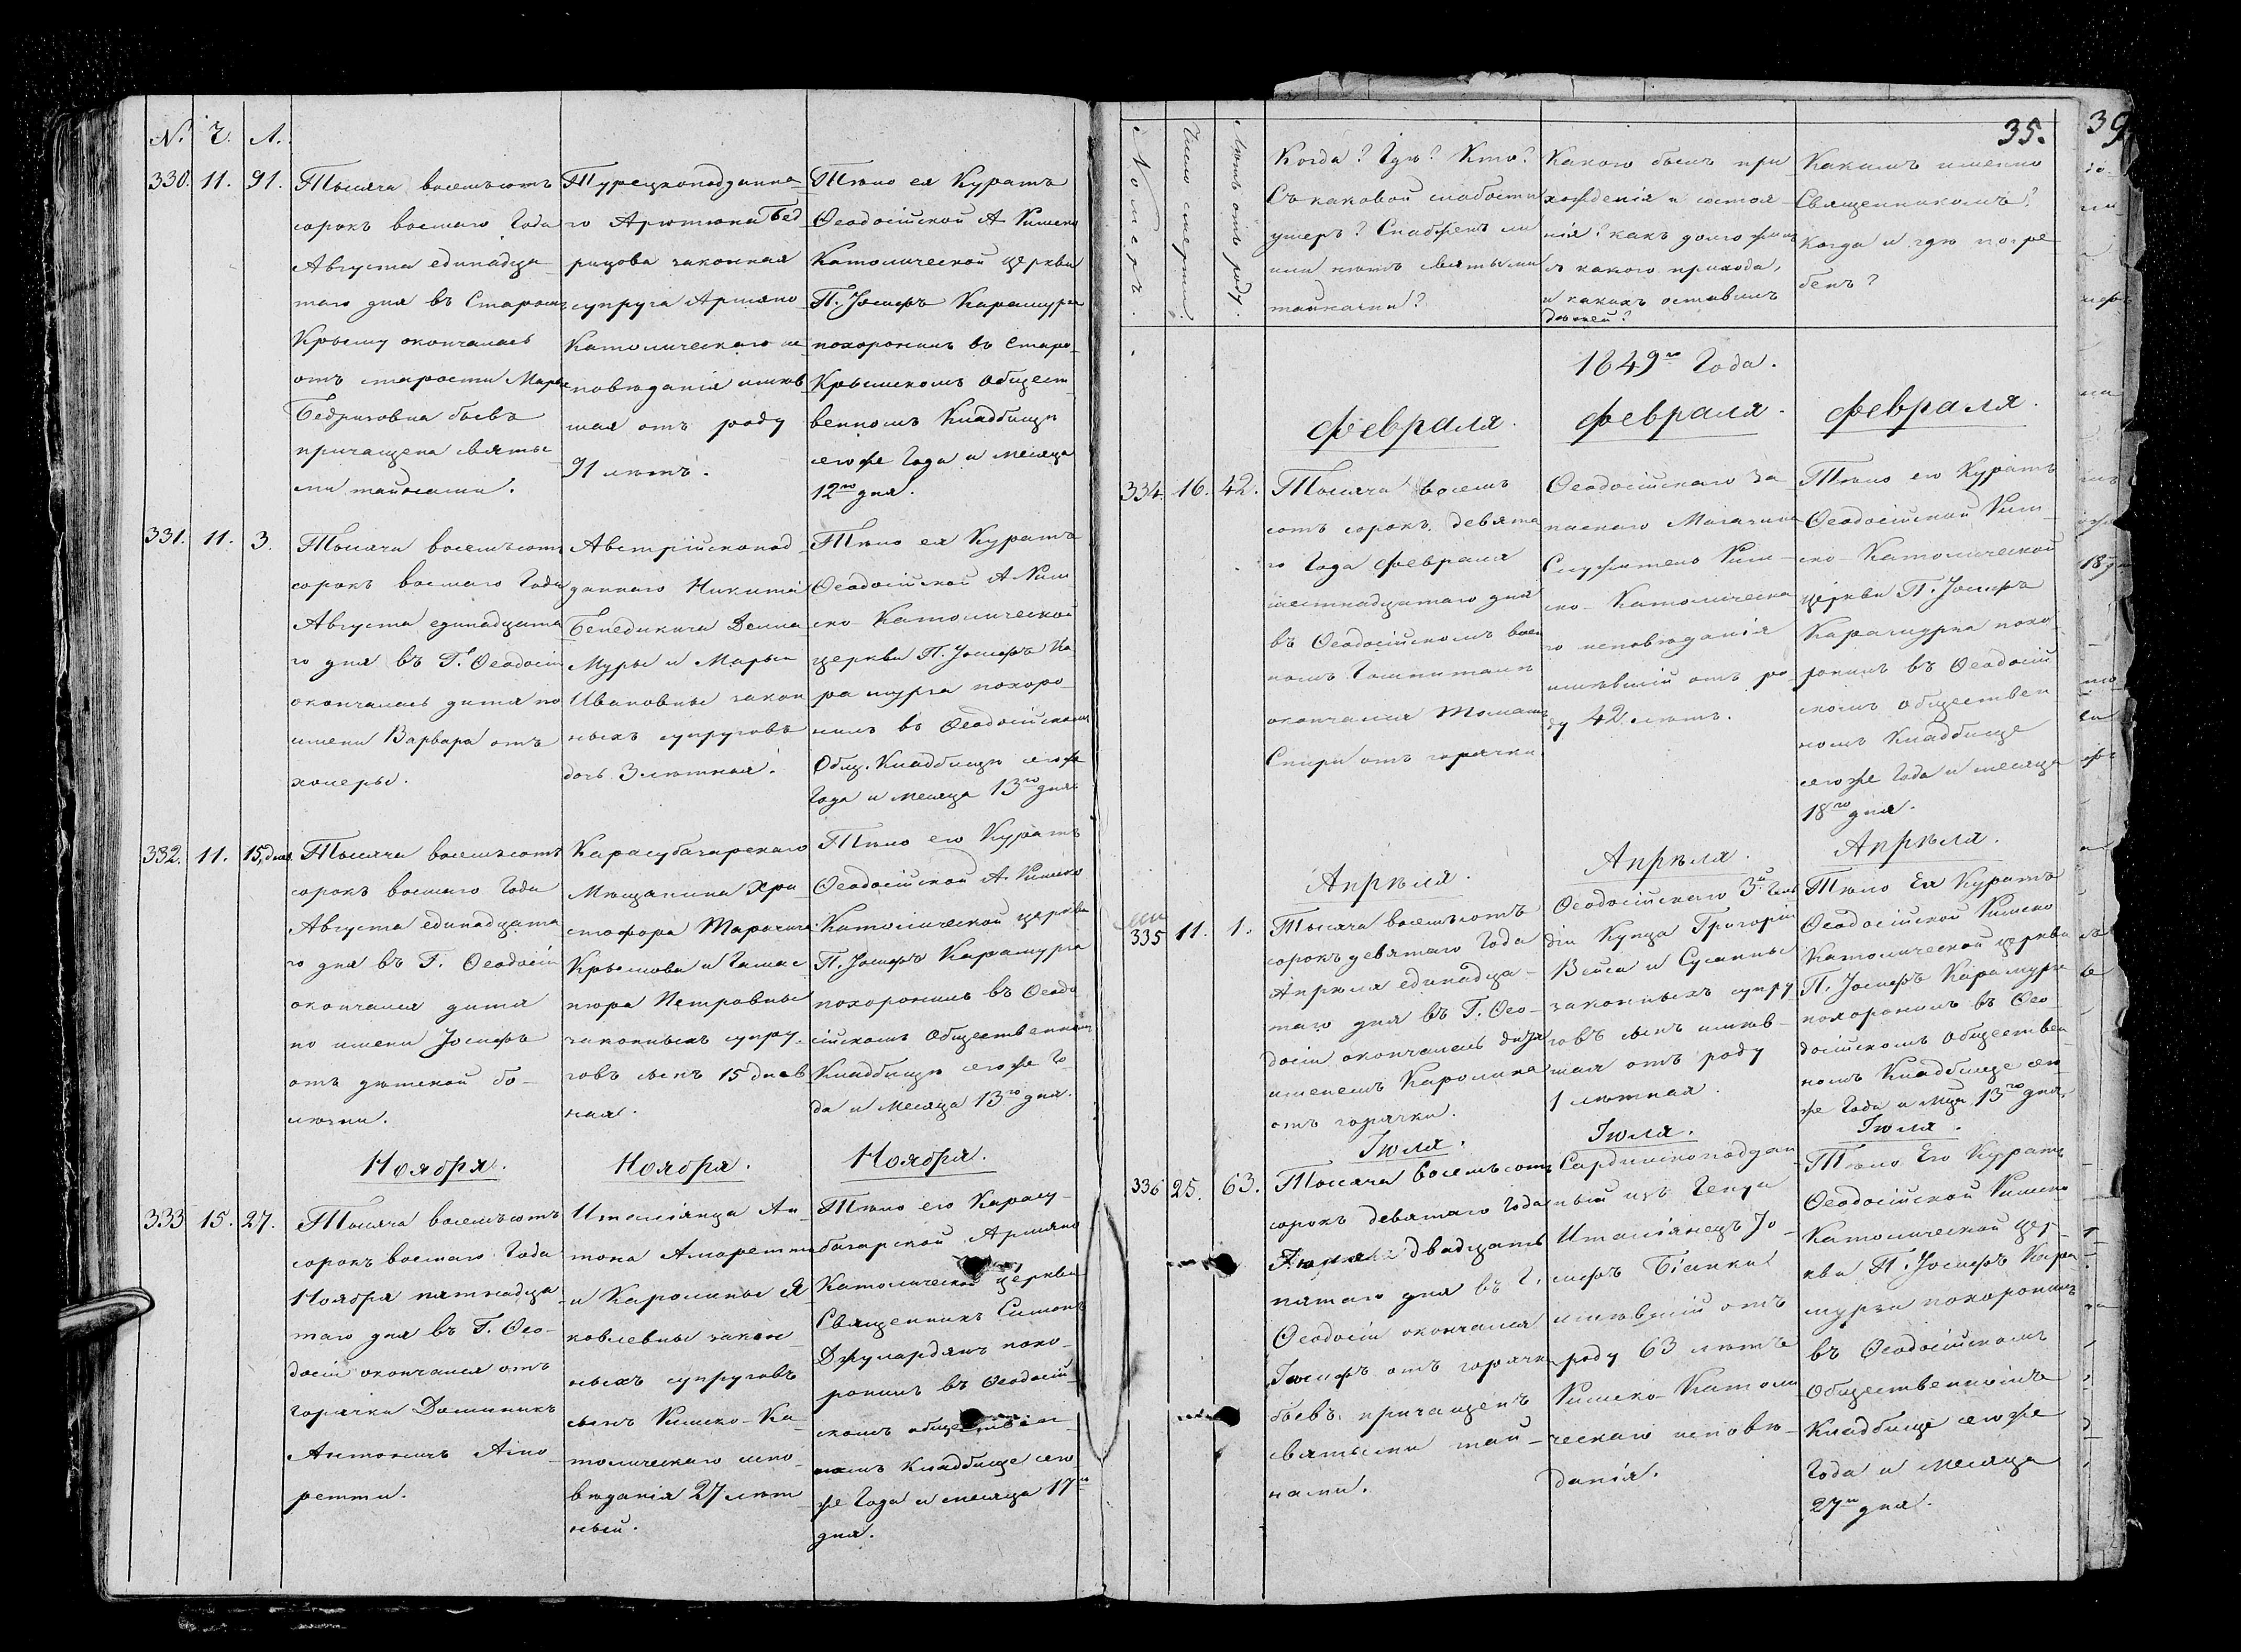 №. Ч. Л.
330. 11. 91.
Тысяча восемьсотъ
сорокъ восьмаго Года
Августа единадца-
таго дня въ Старомъ
Крыму окончалась
отъ старости Марья
Бедриговна бывъ
причащена святы-
ми тайнами.
Турецкоподданна-
го Арютюна Бед
рицова законная
супруга Армяно
Католическаго ис
повѣданія имѣв
шая отъ роду
91 лѣтъ.
Тѣло ея Куратъ
Ѳеодосійской А Римско
Католической церкви
П. Іосифъ Карамурза
похоронилъ въ Старо-
Крымскомъ общест
венномъ Кладбищѣ
сегоже Года и месяца
12го дня.
331. 11. 3.
Тысяча восемьсотъ
сорокъ восьмаго Года
Августа единадцата
го дня въ Г. Ѳеодосіи
окончалась дитя по
имени Варвара отъ
холеры.
Австрійскопод
даннаго Никиты
Бенедикича Делла
Муры и Марьи
Ивановны закон
ныхъ супруговъ
дочь 3 лѣтная.
Тѣло ея Куратъ
Ѳеодосійской А Рим
ско Католической
церкви П. Іосифъ Ка
рамурза похоро-
нилъ въ Ѳеодосійскомъ
Общ. Кладбищѣ сегоже
Года и месяца 13го дня
332. 11. 15. дней.
Тысяча восемьсотъ
сорокъ восьмаго Года
Августа единадцата
го дня въ Г. Ѳеодосіи
окончался дитя
по имени Іосифъ
отъ дѣтской бо-
лѣзни.
Карасубазарскаго
Мѣщанина Хри
стофора
Крымова и
Петровны
законныхъ супру-
говъ сынъ 15 днев
ная.
Тѣло его Куратъ
Ѳеодосійской А. Римско
Католической церкви
П. Іосифъ Карамурза
похоронилъ въ Ѳеодо
сійскомъ Общественномъ
Кладбищѣ сегоже Го
да и месяца 13го дня.
Ноября. Ноября. Ноября.
333 15. 27.
Тысяча восемьсотъ
сорокъ восьмаго Года
Ноября пятнадца
таго дня въ Г. Ѳео-
досіи окончался отъ
горячки Доминикъ
Антоничъ Амо-
ретти.
Италіянца Ан-
тона Аморетти
и Каролины Я
ковлевны закон
ныхъ супруговъ
сынъ Римско-Ка
толическаго испо-
вѣданія 27 лѣт
ный.
Тѣло его Карасу-
базарской Армяно
Католической церкви
Священникъ Симонъ
Джулардянъ похо-
ронилъ въ Ѳеодосій-
скомъ обществен-
номъ Кладбище сего
же Года и месяца 17го
дня.
35.
39
Номеръ.
Число смерти.
Лѣтъ отъ роду.
Когда? Гдѣ? Кто?
Съ каковой слабости
умеръ? Снабженъ ли
или нѣтъ святыми
тайнами?
Какого былъ про
хожденія и состоя-
нія? какъ долго жилъ
и какого прихода,
и какихъ оставилъ
дѣтей?
Какимъ именно
Священникомъ?
когда и гдѣ погре
бенъ?
1849го Года.
Февраля. Февраля. Февраля.
334. 16. 42.
Тысяча восемь
сотъ сорокъ девята
го Года февраля
шестнадцатаго дня
въ Ѳеодосійскомъ воен
номъ Гошпиталѣ
окончался Томашъ
Спири отъ горячки
Ѳеодосійскаго за
паснаго Магазина
Служитель Рим-
ско-Католическа
го исповѣданія
имѣвшій отъ ро
ду 42 лѣтъ.
Тѣло его Куратъ
Ѳеодосійской Рим-
ско-Католической
церкви П. Іосифъ
Карамурза похо-
ронилъ въ Ѳеодосій
скомъ обществен
номъ Кладбище
сегоже Года и месяца
18го дня.
Апрѣля. Апрѣля. Апрѣля.
335 11. 1.
Тысяча восемьсотъ
сорокъ девятаго Года
Апрѣля единадца-
таго дня въ Г. Ѳео-
досіи окончалась дитя
именемъ Каролина
отъ горячки.
Ѳеодосійскаго 3й Гиль
діи Купца Григорія
Вейса и Сусанны
законныхъ супру
говъ сынъ имѣв-
шая отъ роду
1 лѣтная.
Тѣло Ея Куратъ
Ѳеодосійской Римско
Католической церкви
П. Іосифъ Карамурза
похоронилъ въ Ѳео-
досійскомъ обществен
номъ Кладбище сего
же Года и Мца 13го дня
Іюля. Іюля. Іюля.
336 25. 63.
Тысяча восемьсотъ
сорокъ девятаго Года
двадцать
пятаго дня въ Г.
Ѳеодосіи окончался
Іосифъ отъ горячки
бывъ причащенъ
святыми тай-
нами.
Сардинскоподдан
ный изъ Генуа
Италіянецъ Іо-
сифъ Біанки
имѣвшій отъ
роду 63 лѣтъ
Римско-Католи
ческаго исповѣ-
данія.
Тѣло Его Куратъ
Ѳеодосійской Римско
Католической цер-
кви П. Іосифъ Кара
мурза похоронилъ
въ Ѳеодосійскомъ
Общественномъ
Кладбище сегоже
Года и месяца
27го дня.